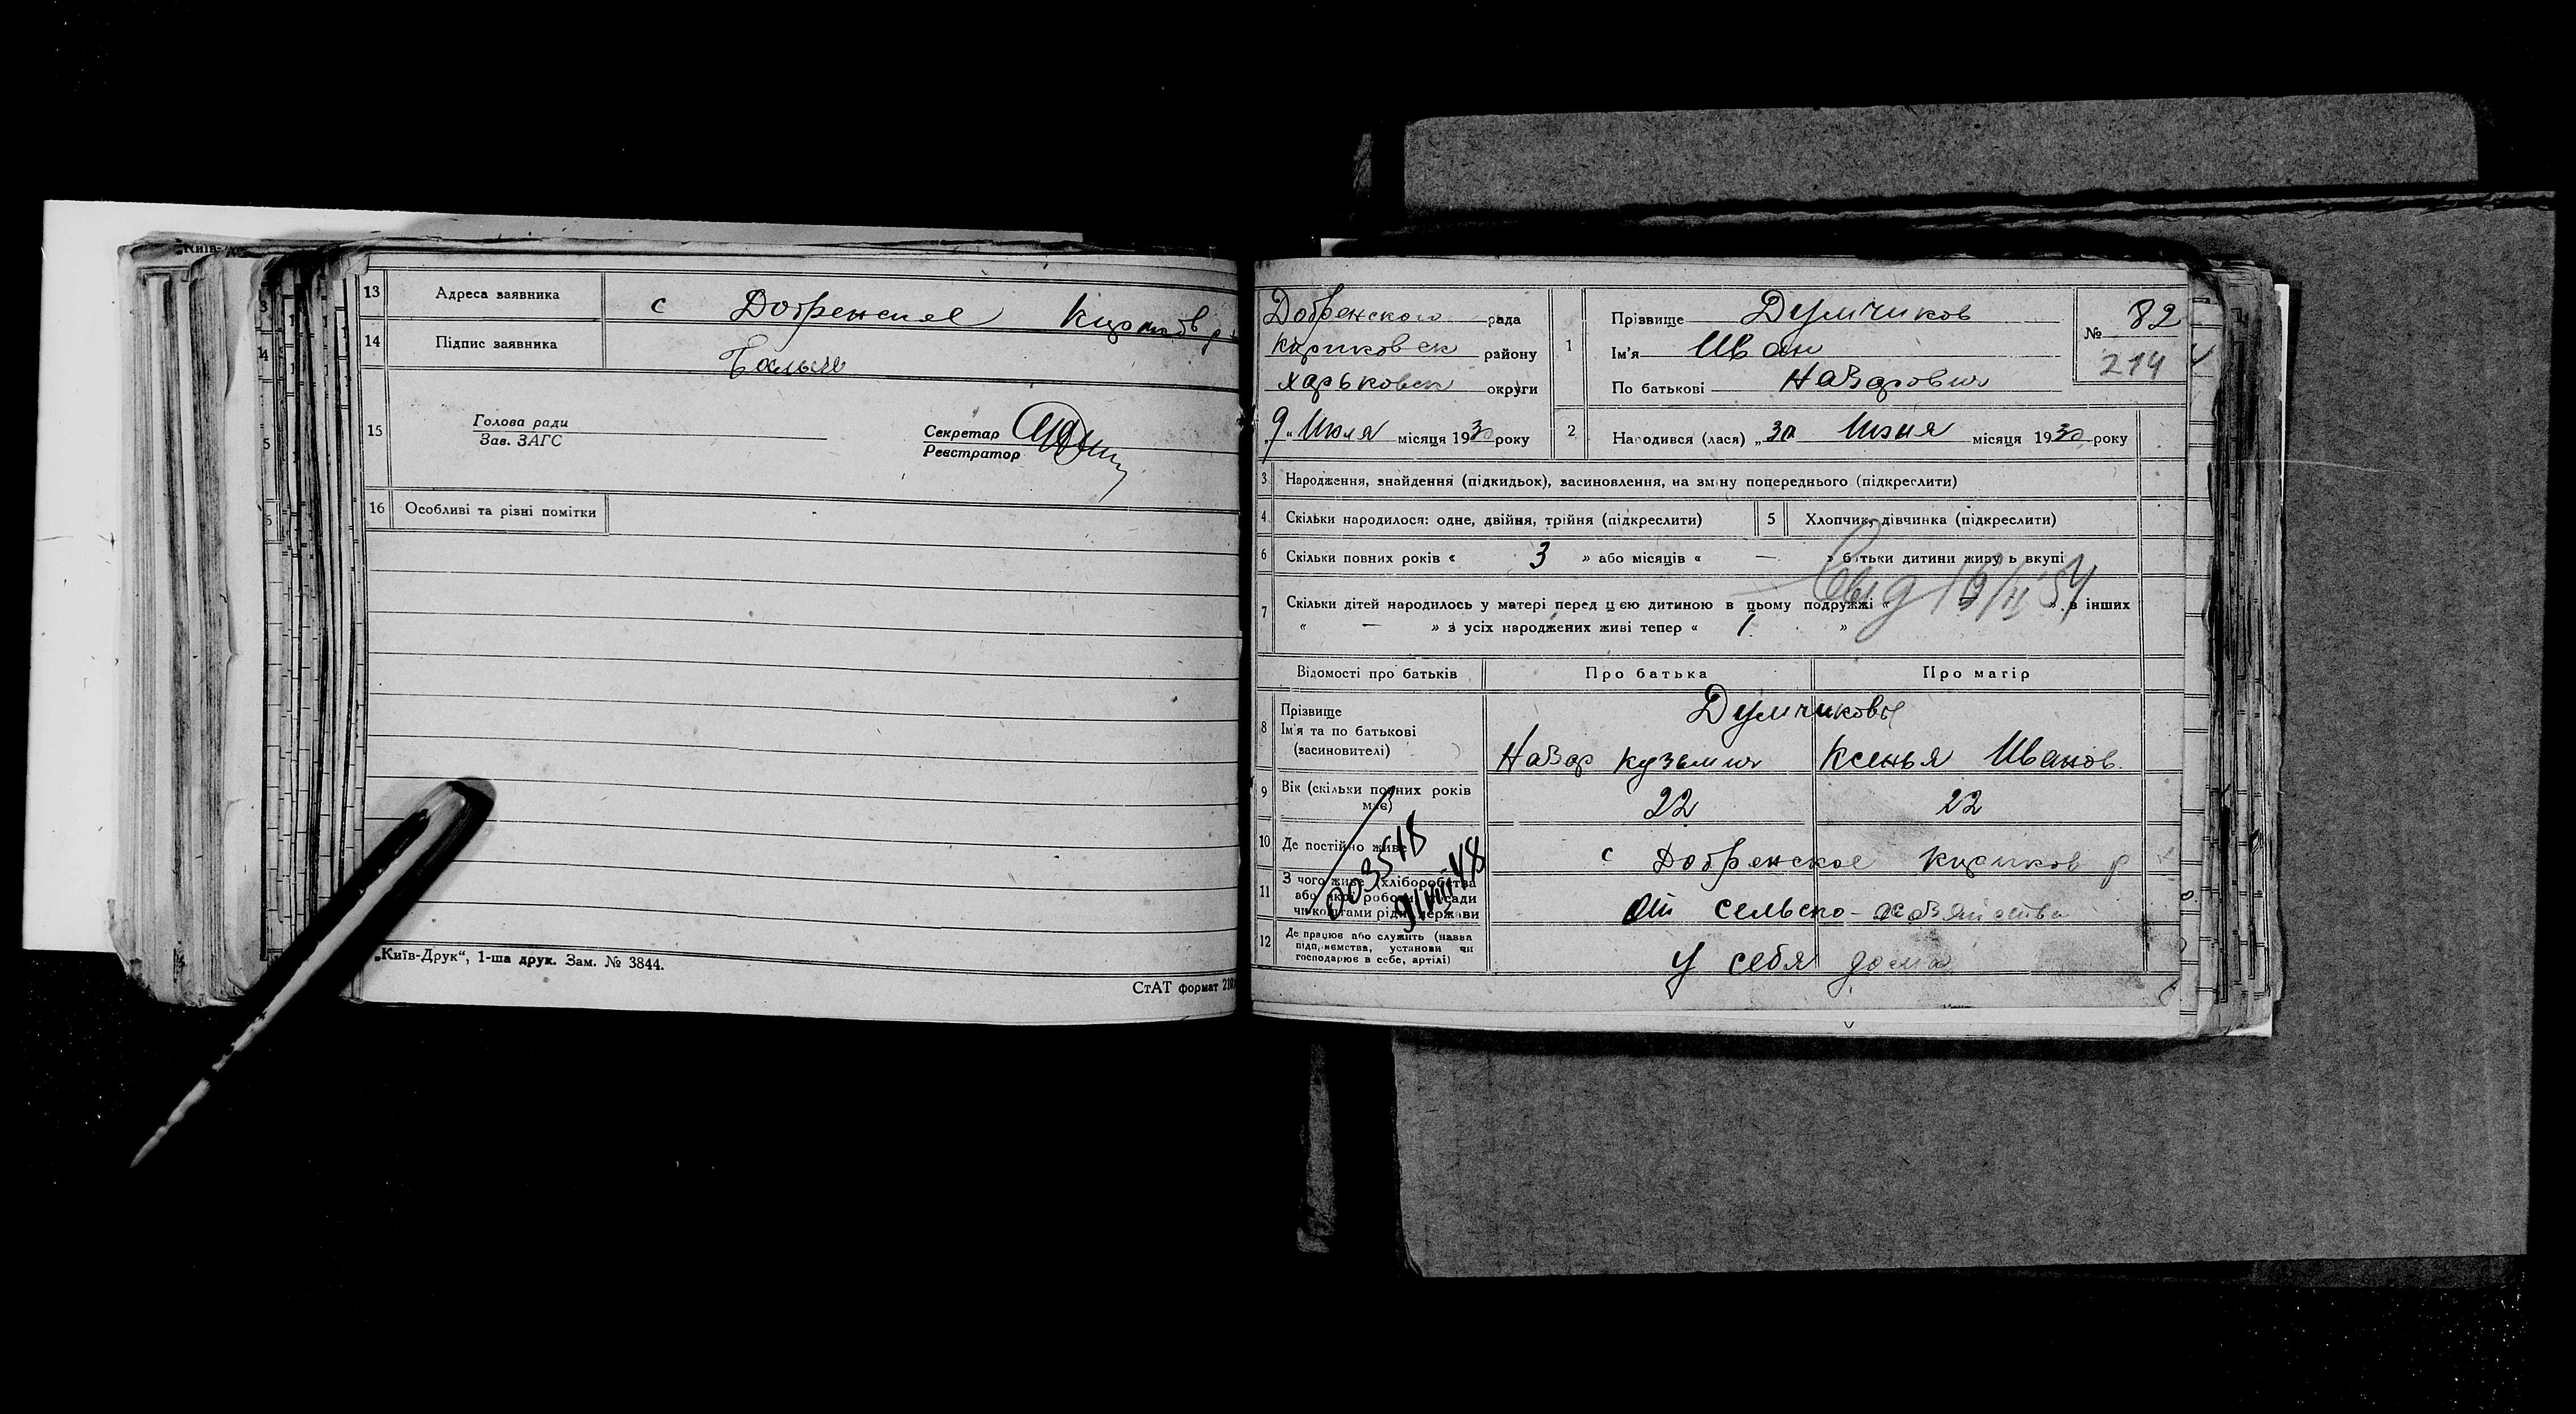 Київ-
13 Адреса заявника с Добренское
14 Підпис заявника
15 Голова ради
Зав. ЗАГС
Секретар
Реєстратор
16 Особливі та різні помітки
„Київ-Друк“, 1-ша друк. Зам. № 3844.
СтАТ формат 210
Добренского рада
района
Харьковск округи
„9“ Июля місяця 1930 року
1 Прізвище Думчиков
Ім'я Иван
По батькові Назарович
№ 82
214
2 Народився (лася) „30 Июня місяця 1930 року
3 Народження, знайдення (підкидьок), засиновлення, на зміну попереднього (підкреслити)
4 Скільки народилося: одне, двійня, трійня (підкреслити) 5 Хлопчик, дівчинка (підкреслити)
6 Скільки повних років « 3 » або місяців « — » батьки дитини живуть вкупі
7 Скільки дітей народилось у матері перед цією дитиною в цьому подружжі « » в інших
« — » з усіх народжених живі тепер « 1 »
Відомості про батьків Про батька Про матір
8 Прізвище Думчиковы
Ім'я та по батькові
(засиновителі) Назар Кузьмич Ксенья Иванов.
9 Вік (скільки повних років має) 22 22
10 Де постійно живе с Добренское
003518
11 З чого живе (хліборобства
або якої роботи, посади
чи коштами рідні, держави От сельско-хозяйства
12 Де працює або служить (назва
підприємства, установи чи
господарює в себе, артілі) у себя дома